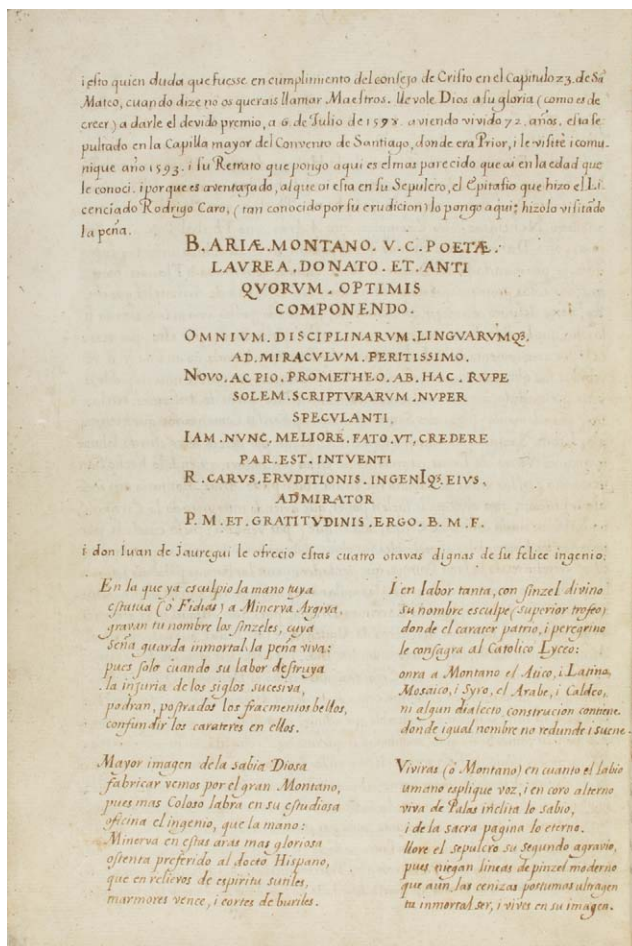 i esto quien duda que fuesse en cumplimiento del consejo de Cristo en el Capitulo 23. de Sā
Mateo, cuando dize no os querais llamar Maestros. llevole Dios a su gloria (como es de
creer) a darle el devido premio, a 6. de Julio de 1598. aviendo vivido 72. años. esta se
pultado en la Capilla mayor del Convento de Santiago, donde era Prior, i le visitè i comu
nique año 1593. i su Retrato que pongo aqui es el mas parecido que ai en la edad que
le conoci. i porque es aventajado, al que oi esta en su Sepulcro, el Epitafio que hizo el Li
cenciado Rodrigo Caro, (tan conocido por su erudicion) lo pongo aqui; hizolo visitādo
la peña.
B. ARIÆ. MONTANO. V. C. POETÆ.
LAVREA. DONATO. ET. ANTI
QVORVM. OPTIMIS
COMPONENDO.
OMNIVM. DISCIPLINARVM. LINGVARVMQ3.
AD. MIRACVLVM. PERITISSIMO.
NOVO. AC PIO. PROMETHEO. AB. HAC. RVPE
SOLEM. SCRIPTVRARVM. NVPER
SPECVLANTI.
IAM. NVNC. MELIORE. FATO. VT. CREDERE
PAR. EST. INTVENTI
R. CARVS. ERVDITIONIS. INGENIQ3. EIVS.
ADMIRATOR
P. M. ET. GRATITVDINIS. ERGO. B. M. F.
i don Iuan de Jauregui le ofrecio estas cuatro otavas dignas de su felice ingenio:
En la que ya esculpio la mano tuya
estatua (ò Fidias) a Minerva Argiva,
gravan tu nombre los sinzeles, cuya
seña guarda inmortal la peña viva:
pues solo cuando su labor destruya
la injuria de los siglos sucesiva,
podran, postrados los fracmentos bellos,
confundir los carateres en ellos.
Mayor imagen de la sabia Diosa
fabricar vemos por el gran Montano,
pues mas Coloso labra en su estudiosa
oficina el ingenio, que la mano:
Minerva en estas aras mas gloriosa
ostenta preferido al docto Hispano,
que en relievos de espiritu sutiles,
marmores vence, i cortes de buriles.
I en labor tanta, con sinzel divino
su nombre esculpe (superior trofeo)
donde el carater patrio, i peregrino
le consagra al Catolico Lyceo:
onra a Montano el Atico, i Latino,
Mosaico, i Syro, el Arabe, i Caldeo,
ni algun dialecto construcion contiene
donde igual nombre no redunde i suene.
Viviras (ò Montano) en cuanto el labio
umano esplique voz, i en coro alterno
viva de Palas inclita lo sabio,
i de la sacra pagina lo eterno.
llore el sepulcro su segundo agravio,
pues niegan lineas de pinzel moderno
que aun las cenizas postumas ultragen
tu inmortal ser, i vives en su imagen.